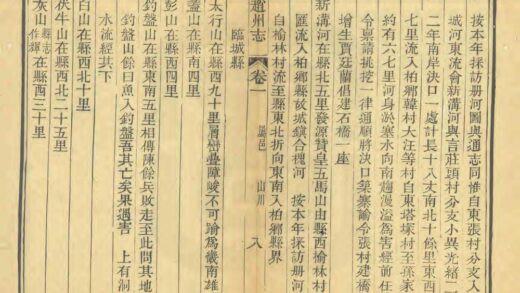 按本年採訪册河圖與通志同惟自東張村分支入
城河東流會新溝河與言莊頭村分支小異光緒二
二年南岸決口一處計長十八丈南北十餘里東西
七里流入柏鄉韓村大汪等村自東塔塚村至孫家
約有六七里河身淤塞水向南趨漫溢為害經前任
令禀請挑挖一律通順將決口築塞諭令張村建橋
增生賈廷蘭倡建石橋一座
新溝河在縣北五里發源贊皇五馬山由縣西榆林村
匯流入柏鄉縣故城鎮合槐河 按本年採訪册河
自榆林村流至縣東北折向東南入柏鄉縣界
趙州志 卷一 山川 八
臨城縣
太行山在縣西九十里層巒疊障峻不可踰為畿南雄
盤山在縣南四里
彭山在縣西四里
釣盤山在縣東南五里相傳陳餘兵敗走至此問其地
釣盤山餘曰魚入釣盤吾其亡矣果遇害 上有洞
水流經其下
白山在縣西北十里
伏牛山在縣西北二十五里
灰山 縣志作輝 在縣西三十里